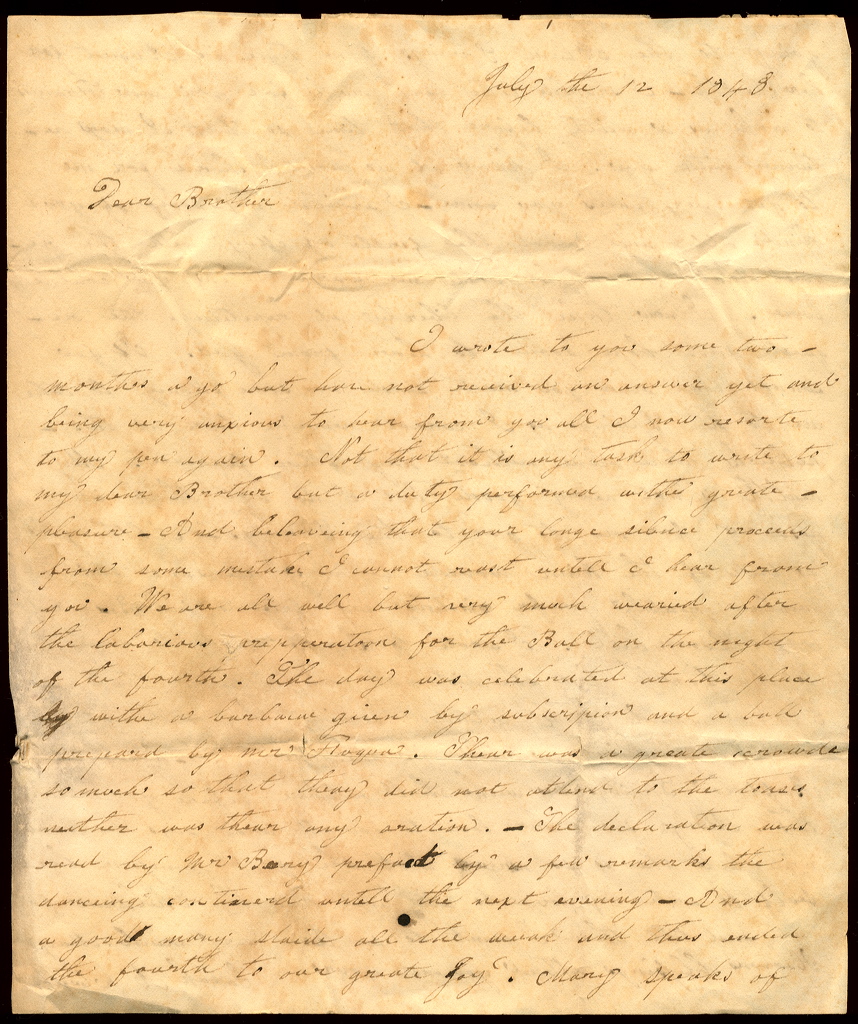 July the 12 1848
Dear Brother
I wrote to you some two -
months ago but have not received an answer yet and
being very anxious to hear from you all I now resorte
to my pen again. Not that it is any task to write to
my dear Brother but a duty performed withe greate -
pleasure - And beleaveing that your longe silence proceeds
from some mistake I cannot reast untill I hear from
you. We are all well but very much wearied after
the laborious prepperation for the Ball on the night
of the fourth. The day was celebrated at this place
withe a barbacue given by subscripion and a ball
prepard by mr Fuqua. Thear was a greate crowde
so much so that theay did not attend to the toases
neither was thear any oration. - The declaration was
read by Mr Berry prefaced by a few remarks the
danceing continued untill the next evening - And
a good many staide all the weak and thus ended
the fourth to our greate Joy. Mary speaks of